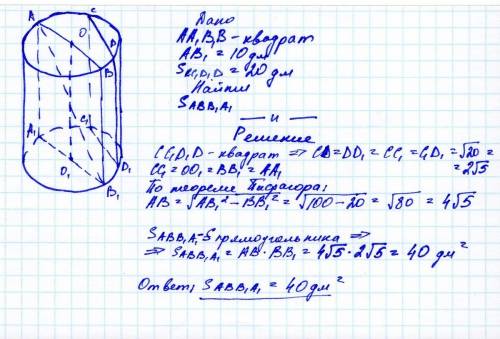 A
C
O
D
B
A₁
C₁
O₁
D₁
B₁
Дано
AA₁B₁B - квадрат
AB₁ = 10 дм
Sсс₁D₁D = 20 дм
Найти
SABB₁A₁
Решение
CC₁D₁D - квадрат ⇒ CD = DD₁ = CC₁ = C₁D₁ = √20 =
= 2√5
CC₁ = OO₁ = BB₁ = AA₁
По теореме Пифагора:
AB = √AB₁² - BB₁² = √100 - 20 = √80 = 4√5
SABB₁A₁ - S прямоугольника ⇒
⇒ SABB₁A₁ = AB · BB₁ = 4√5 · 2√5 = 40 дм²
Ответ: SABB₁A₁ = 40 дм²